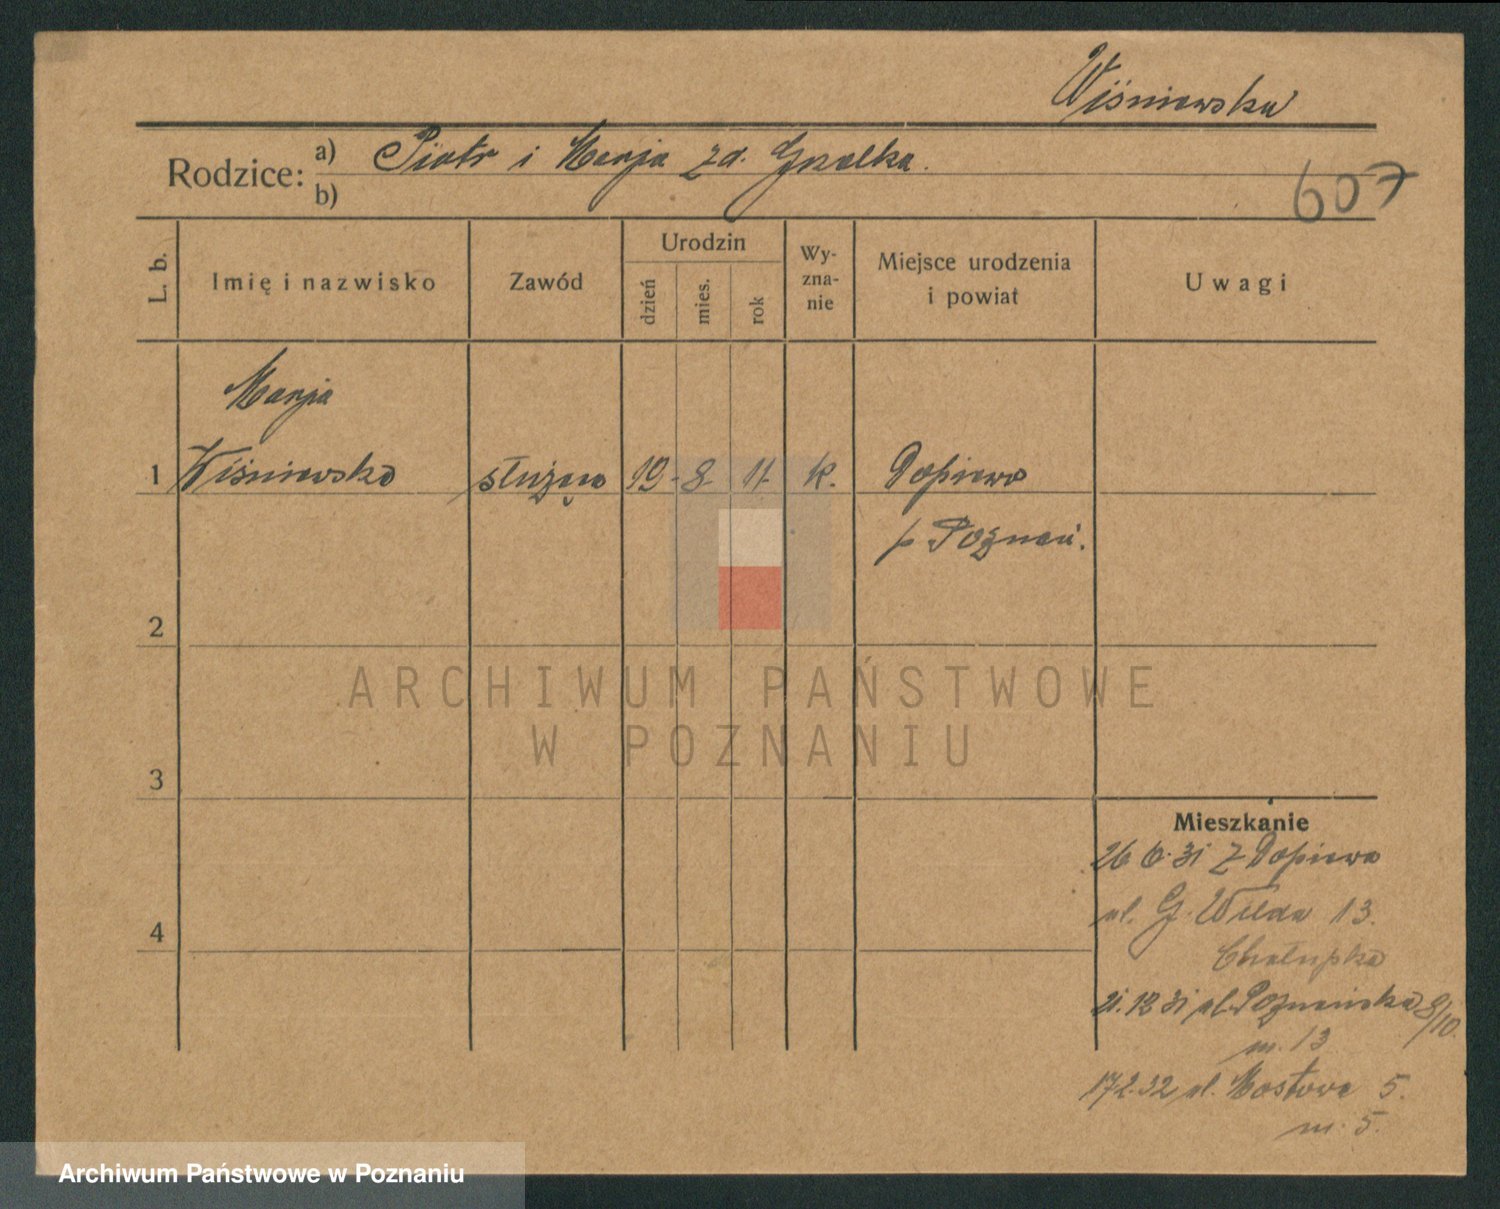 Wiśniewska
Rodzice: a) Piotr i Marja zd. Grzelka.
b)
607
L. b.
Imię i nazwisko
Zawód
Urodzin
dzień
mies.
rok
Wy-
zna-
nie
Miejsce urodzenia
i powiat
Uwagi
Marja
1 Wiśniewska służąca 19 - 8. 11. k. Dopiewo
p Poznań.
2
ARCHIWUM PAŃSTWOWE
W POZNANIU
3
Mieszkanie
26 6. 31 z Dopiewa
4
ul. G. Wilda 13.
Chałupka
21. 12 31 ul. Poznańska 8/10.
m. 13
17.2.32 ul. Mostowa 5.
m. 5.
Archiwum Państwowe w Poznaniu